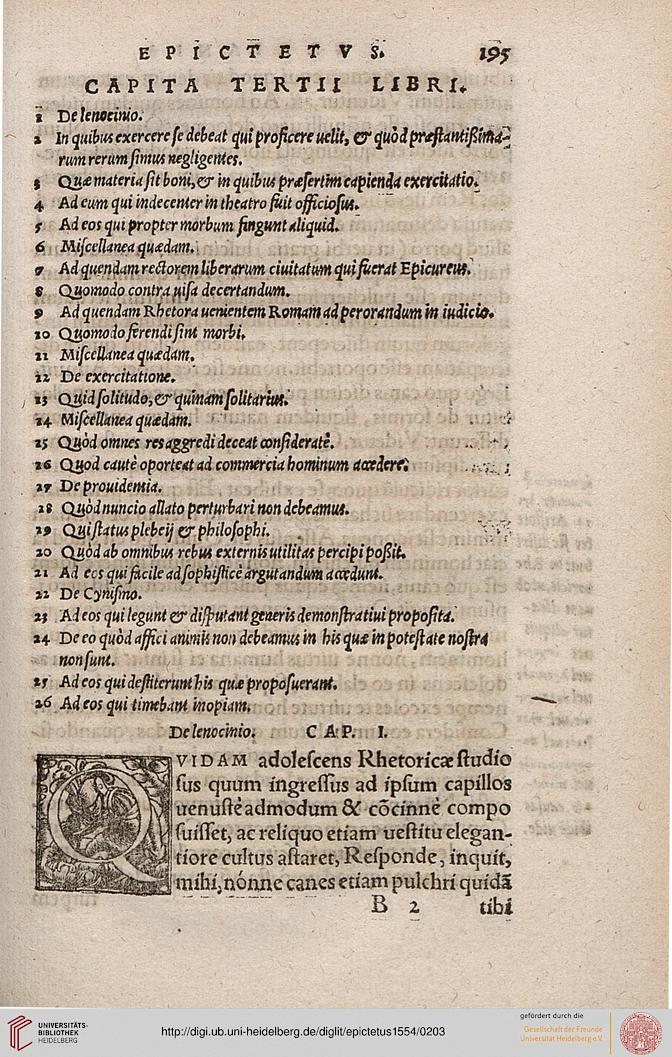 EPICTETVS. 195
CAPITA TERTII LIBRI.
1 De lenocinio.
2 In quibus exercere se debeat qui proficere uelit, & quòd præstantißima-
rum rerum simus negligentes.
3 Quæ materia sit boni, & in quibus præsertim capienda exercitatio.
4 Ad eum qui indecenter in theatro fuit officiosus.
5 Ad eos qui propter morbum fingunt aliquid.
6 Miscellanea quædam.
7 Ad quendam rectorem liberarum ciuitatum qui fuerat Epicureus.
8 Quomodo contra uisa decertandum.
9 Ad quendam Rhetora uenientem Romam ad perorandum in iudicio.
10 Quomodo ferendi sint morbi.
11 Miscellanea quædam.
12 De exercitatione.
13 Quid solitudo, & quinam solitarius.
14 Miscellanea quædam.
15 Quòd omnes res aggredi deceat consideratè.
16 Quod cautè oporteat ad commercia hominum accedere.
17 De prouidentia.
18 Quòd nuncio allato perturbari non debeamus.
19 Qui status plebeij & philosophi.
20 Quòd ab omnibus rebus externis utilitas percipi poßit.
21 Ad eos qui facile ad sophisticè argutandum accedunt.
22 De Cynismo.
23 Ad eos qui legunt & disputant generis demonstratiui proposita.
24 De eo quòd affici animis non debeamus in his quæ in potestate nostra
non sunt.
25 Ad eos qui destiterunt his quæ proposuerant.
26 Ad eos qui timebant inopiam.
De lenocinio. CAP. I.
QVIDAM adolescens Rhetoricæ studio
sus quum ingressus ad ipsum capillos
uenustè admodum & cōcinnè compo
suisset, ac reliquo etiam uestitu elegan-
tiore cultus astaret, Responde, inquit,
mihi, nónne canes etiam pulchri quidā
B 2 tibi
UNIVERSITÄTS-
BIBLIOTHEK
HEIDELBERG
http://digi.ub.uni-heidelberg.de/diglit/epictetus1554/0203
gefördert durch die
Gesellschaft der Freunde
Universität Heidelberg e.V.